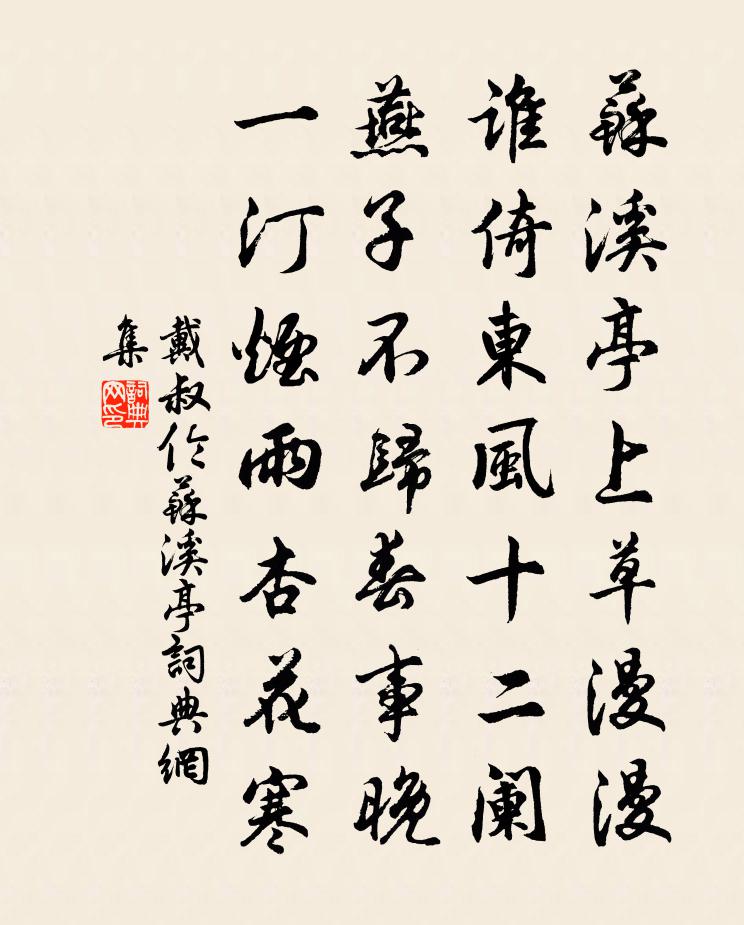 蘇溪亭上草漫漫
誰倚東風十二闌
燕子不歸春事晚
一汀煙雨杏花寒
戴叔伦蘇溪亭詞典網
集
詞典网印